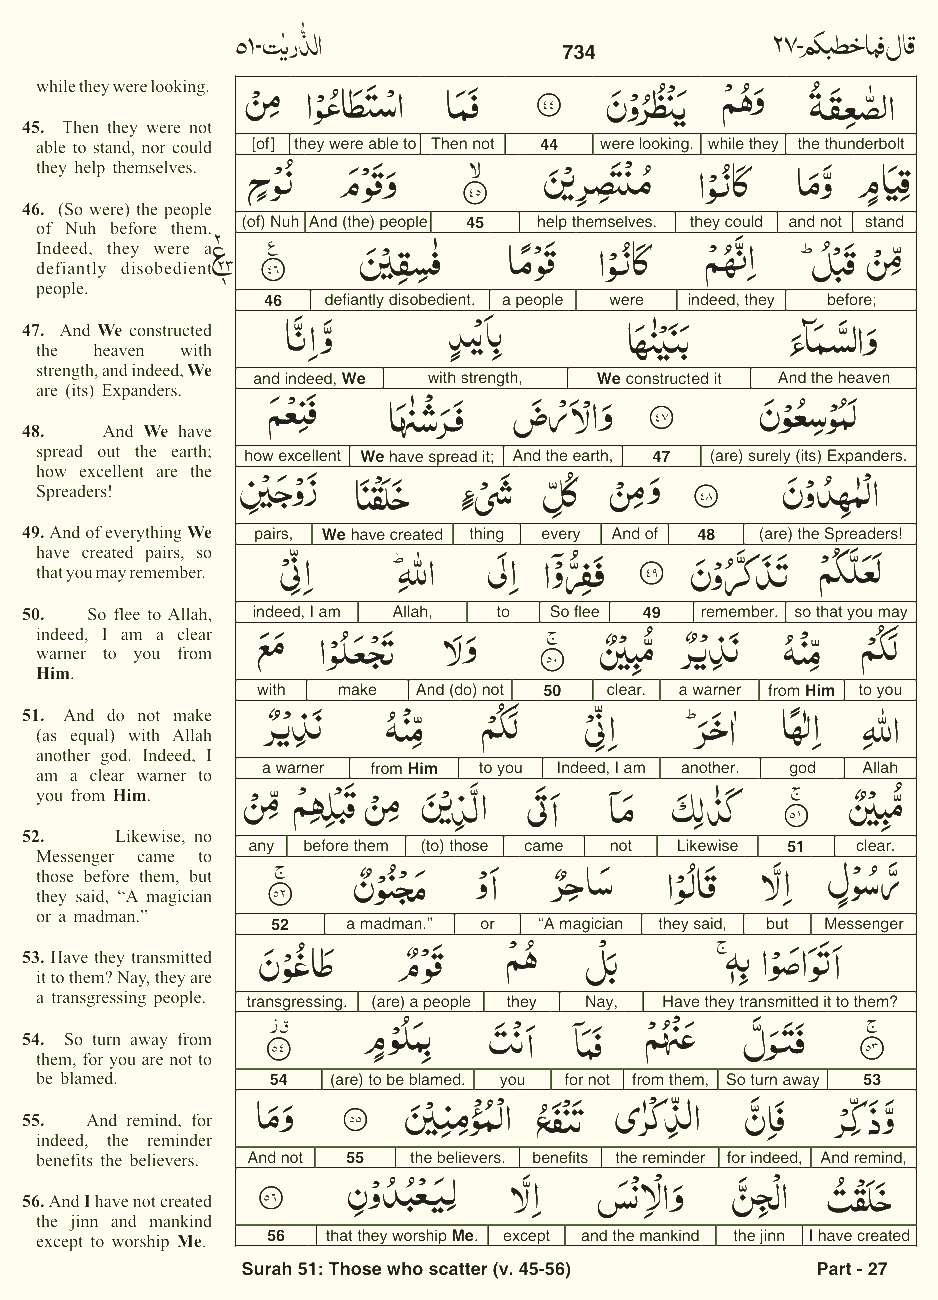 الذّٰريٰت-٥١
734
قال فماخطبكم-٢٧
while they were looking.
45. Then they were not
able to stand, nor could
they help themselves.
46. (So were) the people
of Nuh before them.
Indeed, they were a
defiantly disobedient
people.
47. And We constructed
the heaven with
strength, and indeed, We
are (its) Expanders.
48. And We have
spread out the earth;
how excellent are the
Spreaders!
49. And of everything We
have created pairs, so
that you may remember.
50. So flee to Allah,
indeed, I am a clear
warner to you from
Him.
51. And do not make
(as equal) with Allah
another god. Indeed, I
am a clear warner to
you from Him.
52. Likewise, no
Messenger came to
those before them, but
they said, “A magician
or a madman.”
53. Have they transmitted
it to them? Nay, they are
a transgressing people.
54. So turn away from
them, for you are not to
be blamed.
55. And remind, for
indeed, the reminder
benefits the believers.
56. And I have not created
the jinn and mankind
except to worship Me.
الصّٰعِقَةُ وَهُمْ يَنْظُرُوْنَ ٤٤ فَمَا اسْتَطَاعُوْا مِنْ
[of] they were able to Then not 44 were looking. while they the thunderbolt
قِيَامٍ وَّمَا كَانُوْا مُنْتَصِرِيْنَ ٤٥ لا وَقَوْمَ نُوْحٍ
(of) Nuh And (the) people 45 help themselves. they could and not stand
مِّنْ قَبْلُ ط اِنَّهُمْ كَانُوْا قَوْمًا فٰسِقِيْنَ ٤٦ ع
46 defiantly disobedient. a people were indeed, they before;
وَالسَّمَآءَ بَنَيْنٰهَا بِاَيْىدٍ وَّاِنَّا
and indeed, We with strength, We constructed it And the heaven
لَمُوْسِعُوْنَ ٤٧ وَالْاَرْضَ فَرَشْنٰهَا فَنِعْمَ
how excellent We have spread it; And the earth, 47 (are) surely (its) Expanders.
الْمٰهِدُوْنَ ٤٨ وَمِنْ كُلِّ شَىْءٍ خَلَقْنَا زَوْجَيْنِ
pairs, We have created thing every And of 48 (are) the Spreaders!
لَعَلَّكُمْ تَذَكَّرُوْنَ ٤٩ فَفِرُّوْٓا اِلَى اللّٰهِ ط اِنِّىْ
indeed, I am Allah, to So flee 49 remember. so that you may
لَكُمْ مِّنْهُ نَذِيْرٌ مُّبِيْنٌ ٥٠ ج وَلَا تَجْعَلُوْا مَعَ
with make And (do) not 50 clear. a warner from Him to you
اللّٰهِ اِلٰهًا اٰخَرَ ط اِنِّىْ لَكُمْ مِّنْهُ نَذِيْرٌ
a warner from Him to you Indeed, I am another. god Allah
مُّبِيْنٌ ٥١ ج كَذٰلِكَ مَآ اَتَى الَّذِيْنَ مِنْ قَبْلِهِمْ مِّنْ
any before them (to) those came not Likewise 51 clear.
رَّسُوْلٍ اِلَّا قَالُوْا سَاحِرٌ اَوْ مَجْنُوْنٌ ٥٢ ج
52 a madman.” or “A magician they said, but Messenger
اَتَوَاصَوْا بِهٖ ج بَلْ هُمْ قَوْمٌ طَاغُوْنَ
transgressing. (are) a people they Nay, Have they transmitted it to them?
٥٣ ج فَتَوَلَّ عَنْهُمْ فَمَآ اَنْتَ بِمَلُوْمٍ ٥٤
54 (are) to be blamed. you for not from them, So turn away 53
وَّذَكِّرْ فَاِنَّ الذِّكْرٰى تَنْفَعُ الْمُؤْمِنِيْنَ ٥٥ وَمَا
And not 55 the believers. benefits the reminder for indeed, And remind,
خَلَقْتُ الْجِنَّ وَالْاِنْسَ اِلَّا لِيَعْبُدُوْنِ ٥٦
56 that they worship Me. except and the mankind the jinn I have created
Surah 51: Those who scatter (v. 45-56)
Part - 27